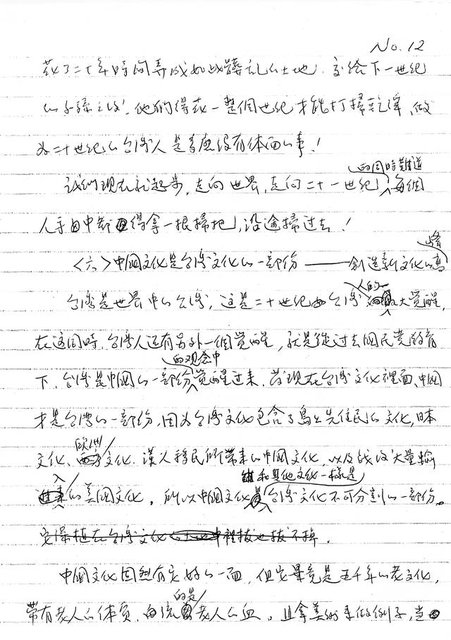 No. 12
花了二十年時間弄成如此髒亂的土地,交給下一世紀
的子孫之後,他們得花一整個世紀才能打掃乾淨,做
為二十世紀的台灣人是多麼沒有体面的事!
我們現在就起步,走向世界,走向二十一世紀的同時,每個
人手中都得拿一根掃把,沿途掃過去!
〈六〉中國文化是台灣文化的一部份——創造新文化的
台灣是世界中的台灣,這是二十世紀台灣人的大覺醒,
在這同時,台灣人還有另外一個覺醒,就是從過去國民黨教育
下,台灣是中國的一部份的觀念中覺醒過來,發現在台灣文化裡面,中國
才是台灣的一部份,因為台灣文化包含了島上先住民的文化,日本
文化,歐洲文化,漢人移民所帶來的中國文化,以及戰後大量輸
進的美國文化,所以中國文化和其他文化一樣是台灣文化不可分割的一部份。
中國文化固然有它好的一面,但它畢竟是五千年的老文化,
帶有老人的体質,的是老人的血,且拿美術系做例子,